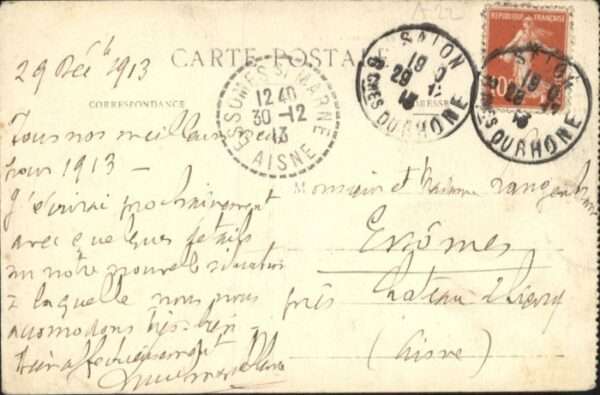 A 22
REPUBLIQUE FRANÇAISE
10
29 Déc 1913
CARTE POSTALE
SALON
19
29 12
13
BCHES DU RHONE
SALON
19
13
BCHES DU RHONE
CORRESPONDANCE
ADRESSE
ESSOMES S/ MARNE
12 40
30 - 12
13
AISNE
Tous nos meilleurs
pour 1913 -
J'écrirai prochainement
avec quelques détails
sur notre nouvelle situation
à laquelle nous nous
acomodons très bien
affectueusement
Monsieur et Madame
Essômes
près Chateau Thierry
(Aisne)